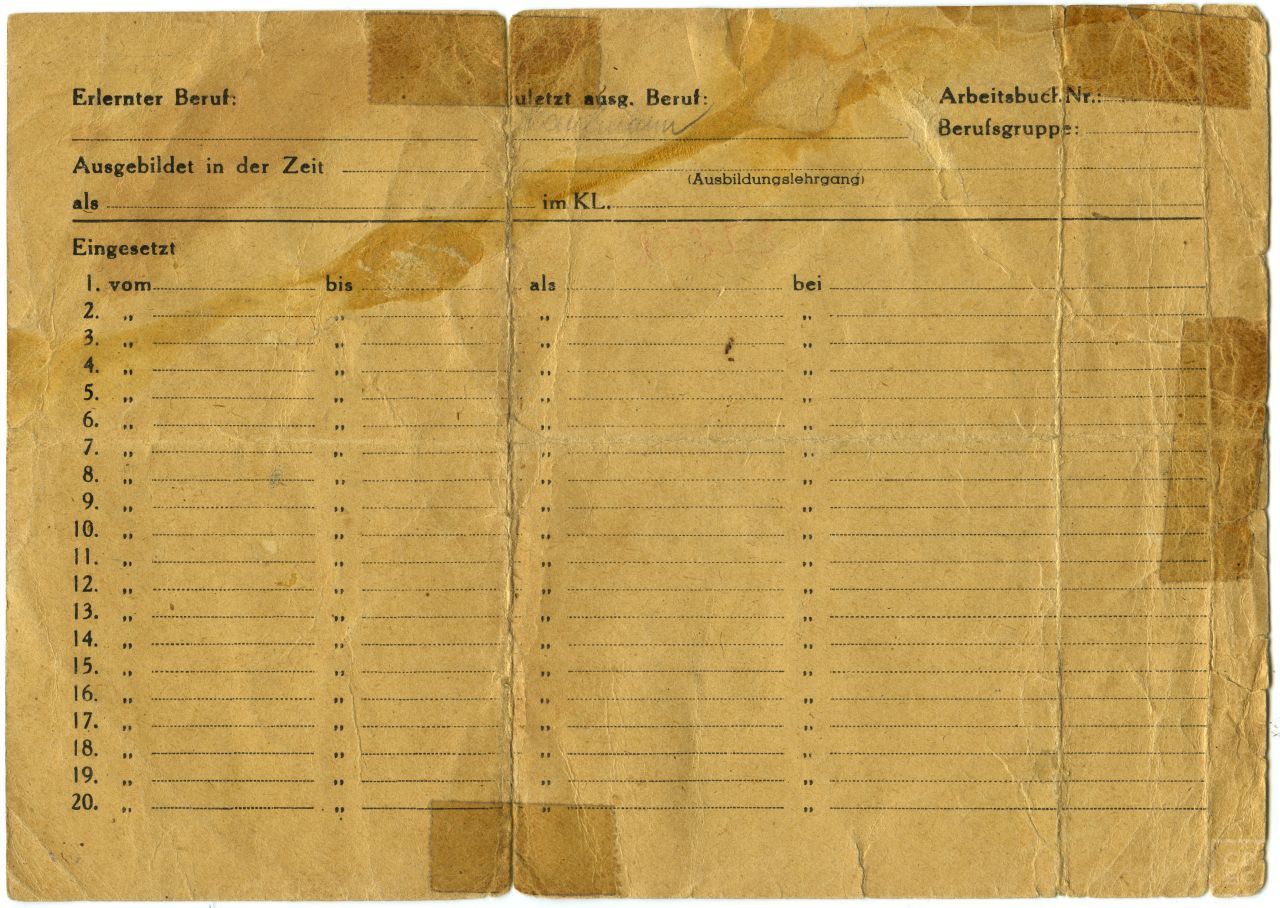 Erlernter Beruf: uletzt ausg. Beruf: Arbeitsbuch Nr.:
Kaufmann Berufsgruppe:
Ausgebildet in der Zeit
(Ausbildungslehrgang)
als im KL.
Eingesetzt
1. vom bis als bei
2. „ „ „ „
3. „ „ „ „
4. „ „ „ „
5. „ „ „ „
6. „ „ „ „
7. „ „ „ „
8. „ „ „ „
9. „ „ „ „
10. „ „ „ „
11. „ „ „ „
12. „ „ „ „
13. „ „ „ „
14. „ „ „ „
15. „ „ „ „
16. „ „ „ „
17. „ „ „ „
18. „ „ „ „
19. „ „ „ „
20. „ „ „ „